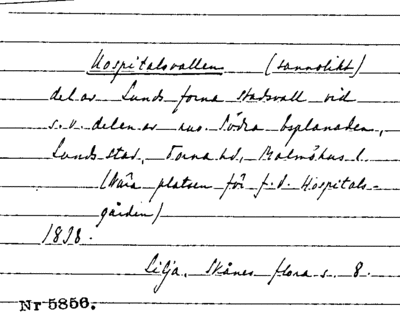 Hospitalsvallen (sannolikt)
del av Lunds forna stadsvall vid
s.v. delen av nuv. Södra Esplanaden,
Lunds stad, Torna hd, Malmöhus l.
(Nära platsen för f.d. Hospitals-
gården)
1838.
Lilja, Skånes flora s. 8.
Nr 5856.